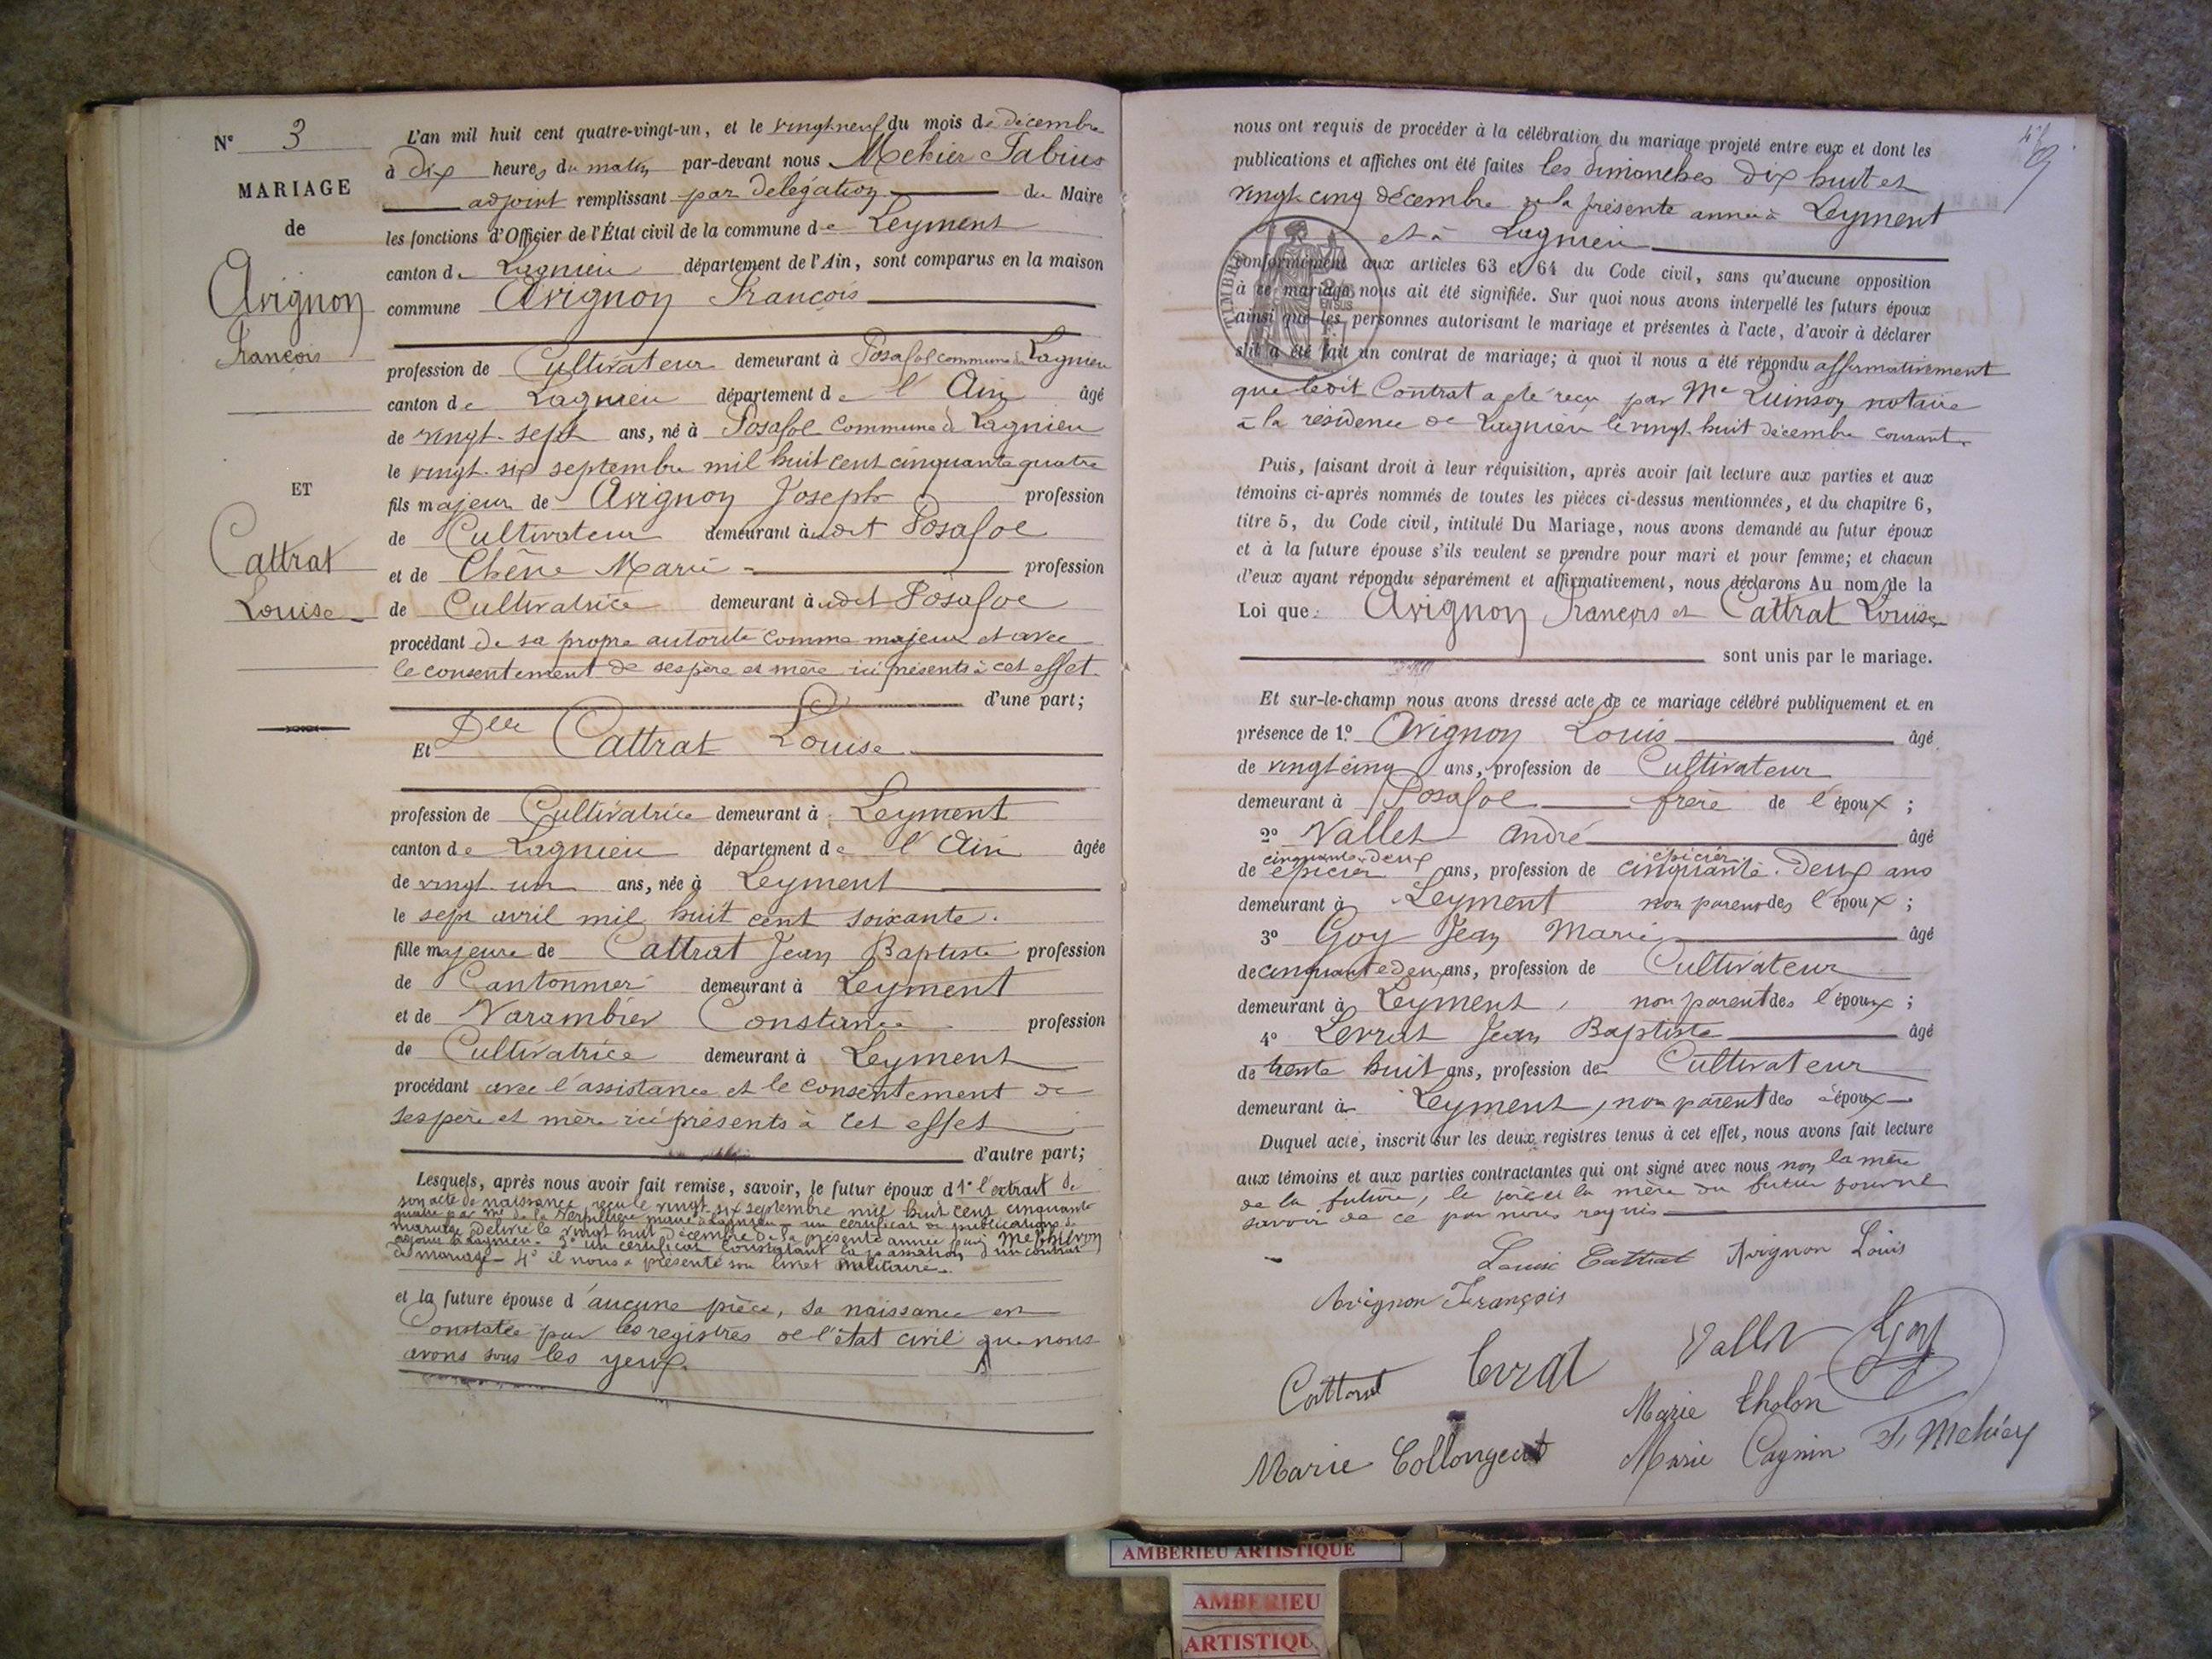 N° 3
MARIAGE
de
Avignon
François
ET
Cattrat
Louise
L'an mil huit cent quatre-vingt-un, et le vingt neuf du mois de décembre
à dix heures du matin par-devant nous Mehier Fabius
adjoint remplissant par délégation du Maire
les fonctions d'Officier de l'État civil de la commune de Leyment
canton de Lagnieu département de l'Ain, sont comparus en la maison
commune Avignon François
profession de Cultivateur demeurant à Posafol commune de Lagnieu
canton de Lagnieu département de l'Ain âgé
de vingt-sept ans, né à Posafol Commune de Lagnieu
le vingt-six septembre mil huit cent cinquante quatre
fils majeur de Avignon Joseph profession
de Cultivateur demeurant audit Posafol
et de Chêne Marie profession
de Cultivatrice demeurant audit Posafol
procédant de sa propre autorité comme majeur et avec
le consentement de ses père et mère ici présents à cet effet.
d'une part;
Et Dlle Cattrat Louise
profession de Cultivatrice demeurant à Leyment
canton de Lagnieu département de l'Ain âgée
de vingt-un ans, née à Leyment
le sept avril mil huit cent soixante.
fille majeure de Cattrat Jean Baptiste profession
de Cantonnier demeurant à Leyment
et de Varambier Constance profession
de Cultivatrice demeurant à Leyment
procédant avec l'assistance et le consentement de
ses père et mère ici présents à cet effet
d'autre part;
Lesquels, après nous avoir fait remise, savoir, le futur époux d 1° l'extrait de
son acte de naissance reçu le vingt-six septembre mil huit cent cinquante
quatre par Mr de la Verpillière maire à Lagnieu - un certificat de publications de
mariage délivré le vingt huit décembre de la présente année par
adjoint à Lagnieu - 3° un certificat constatant la passation d'un contrat
de mariage - 4° il nous a présenté son livret militaire.
et la future épouse d'aucune pièce, sa naissance en
Constatée par les registres de l'état civil que nous
avons sous les yeux.
nous ont requis de procéder à la célébration du mariage projeté entre eux et dont les
publications et affiches ont été faites les dimanches dix huit et
vingt-cinq décembre de la présente année à Leyment
et à Lagnieu
conformément aux articles 63 et 64 du Code civil, sans qu'aucune opposition
à ce mariage nous ait été signifiée. Sur quoi nous avons interpellé les futurs époux
ainsi que les personnes autorisant le mariage et présentes à l'acte, d'avoir à déclarer
s'il a été fait un contrat de mariage; à quoi il nous a été répondu affirmativement
que ledit Contrat a été reçu par Me Quinson notaire
à la résidence de Lagnieu le vingt-huit décembre courant.
TIMBRE
EN SUS
Puis, faisant droit à leur réquisition, après avoir fait lecture aux parties et aux
témoins ci-après nommés de toutes les pièces ci-dessus mentionnées, et du chapitre 6,
titre 5, du Code civil, intitulé Du Mariage, nous avons demandé au futur époux
et à la future épouse s'ils veulent se prendre pour mari et pour femme; et chacun
d'eux ayant répondu séparément et affirmativement, nous déclarons Au nom de la
Loi que: Avignon François et Cattrat Louise
sont unis par le mariage.
Et sur-le-champ nous avons dressé acte de ce mariage célébré publiquement et en
présence de 1° Avignon Louis âgé
de vingt cinq ans, profession de Cultivateur
demeurant à Posafol frère de l'époux;
2° Vallet André âgé
cinquante-deux épicier
de épicier ans, profession de cinquante-deux ans
demeurant à Leyment non parent des l'époux;
3° Goy Jean Marie âgé
de cinquante deux ans, profession de Cultivateur
demeurant à Leyment, non parent des l'époux;
4° Levrat Jean Baptiste âgé
de trente huit ans, profession de Cultivateur
demeurant à Leyment, non parent des époux
Duquel acte, inscrit sur les deux registres tenus à cet effet, nous avons fait lecture
aux témoins et aux parties contractantes qui ont signé avec nous non la mère
de la future, le père et la mère du futur pour ne
savoir de ce par nous requis
Louise Cattrat Avignon Louis
Avignon François
Cattrat Levrat Vallet Goy
Marie Tholon
Marie Collongeat Marie Cagnin F. Mehier
AMBERIEU ARTISTIQUE
AMBERIEU
ARTISTIQU